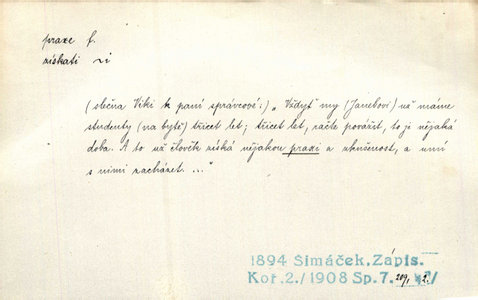 praxe f.
získati ~i
(slečna Viki k paní správcové:) „Vždyť my (Janebovi) už máme
studenty (na bytě) třicet let; třicet let, račte povážit, to je nějaká
doba. A to už člověk získá nějakou praxi a zkušenost, a umí
s nimi zacházet ..."
1894 Šimáček, Zápis.
Koř. 2./1908 Sp. 7. 209, 2./